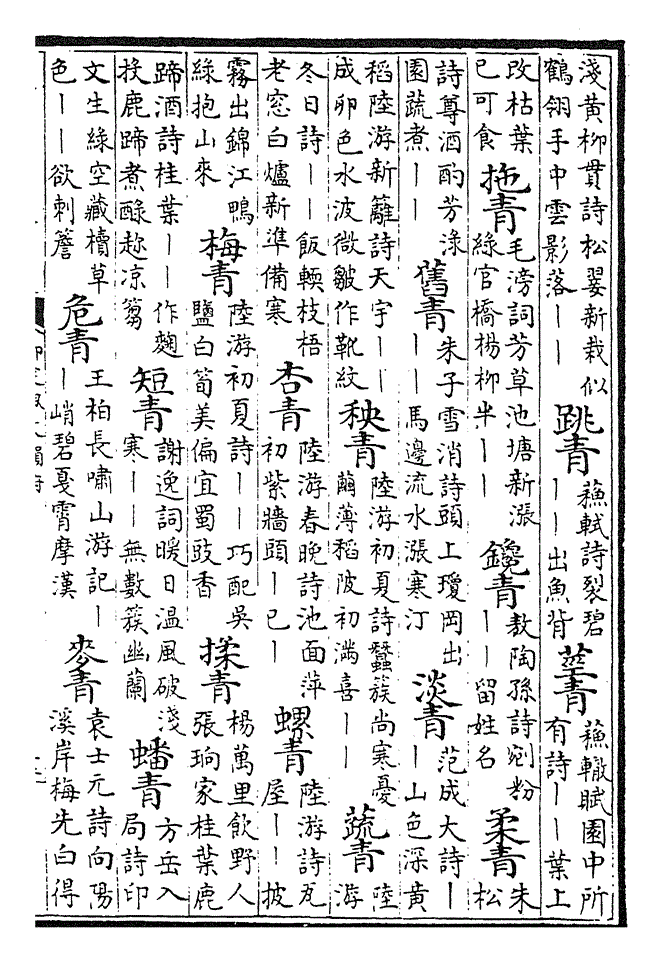 淺黃柳貫詩松翣新栽似
鶴翎手中雲影落丨丨
跳青
蘇軾詩裂碧
丨丨出魚背
莖青
蘇轍賦園中所
有詩丨丨葉上
改枯葉
已可食
拖青
毛滂詞芳草池塘新漲
綠官橋楊柳半丨丨
鑱青
敖陶孫詩剜粉
丨丨留姓名
柔青
朱
松
詩尊酒酌芳渌
園蔬煮丨丨
舊青
朱子雪消詩頭上瓊岡出
丨丨馬邊流水漲寒汀
淡青
范成大詩丨
丨山色深黃
稻陸游新籬詩天宇丨丨
成卵色水波微皺作靴紋
秧青
陸游初夏詩蠶簇尚寒憂
繭薄稻陂初滿喜丨丨
蔬青
陸
游
冬日詩丨丨飯輭枝梧
老窓白爐新準備寒
杏青
陸游春晚詩池面萍
初紫牆頭丨已丨
螺青
陸游詩瓦
屋丨丨披
霧出錦江鴨
綠抱山來
梅青
陸游初夏詩丨丨巧配吳
鹽白筍美偏宜蜀豉香
揉青
楊萬里飲野人
張珦家桂葉鹿
蹄酒詩桂葉丨丨作麴
投鹿蹄煮醁趂凉篘
短青
謝逸詞暖日温風破淺
寒丨丨無數簇幽蘭
蟠青
方岳入
局詩印
文生綠空藏櫝草
色丨丨欲刺簷
危青
王柏長嘯山游記丨
丨峭碧戛霄摩漢
麥青
袁士元詩向陽
溪岸梅先白得